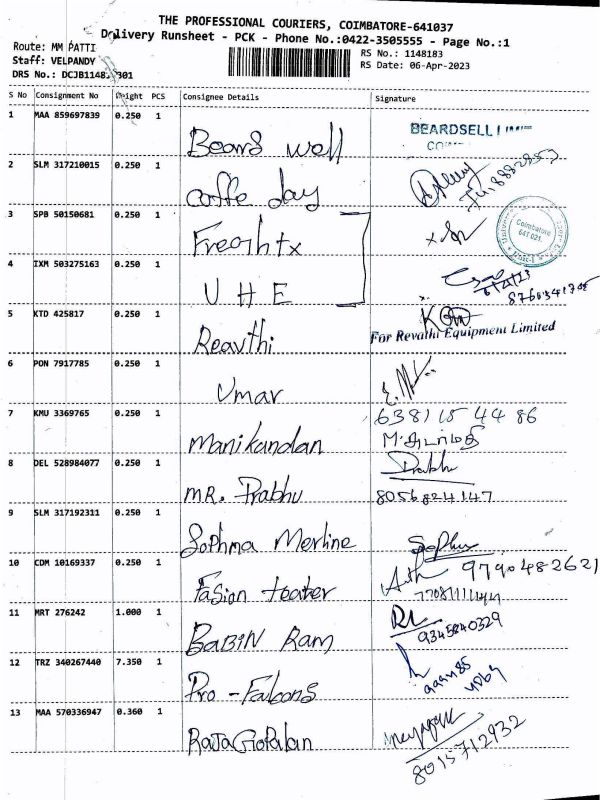 THE PROFESSIONAL COURIERS, COIMBATORE-641037
Delivery Runsheet - PCK - Phone No.:0422-3505555 - Page No.:1
Route: MM PATTI
RS No.: 1148183
Staff: VELPANDY
RS Date: 06-Apr-2023
DRS No.: DCJB1148 301
S No Consignment No Weight PCS Consignee Details Signature
1 MAA 859697839 0.250 1 Beard well BEARDSELL
2 SLM 317210015 0.250 1 Coffe day
3 SPB 50150681 0.250 1 Freghtx
Coimbatore
641 021.
4 IXM 503275163 0.250 1 U H E
6/4/23
5 KTD 425817 0.250 1 Reavthi
For Revathi Equipment Limited
6 PON 7917785 0.250 1 Umar
7 KMU 3369765 0.250 1 Manikandan 638115 44 86
8 DEL 528984077 0.250 1 MR. Prabhu Prabhu
8056824147
9 SLM 317192311 0.250 1 Sophma Merline Sophu
10 CDM 10169337 0.250 1 Fasion teater 9790482621
11 MRT 276242 1.000 1 BABIN Ram
9345840329
12 TRZ 340267440 7.350 1 Pro - Falcons
13 MAA 570336947 0.360 1 RajaGopalan
8015712932